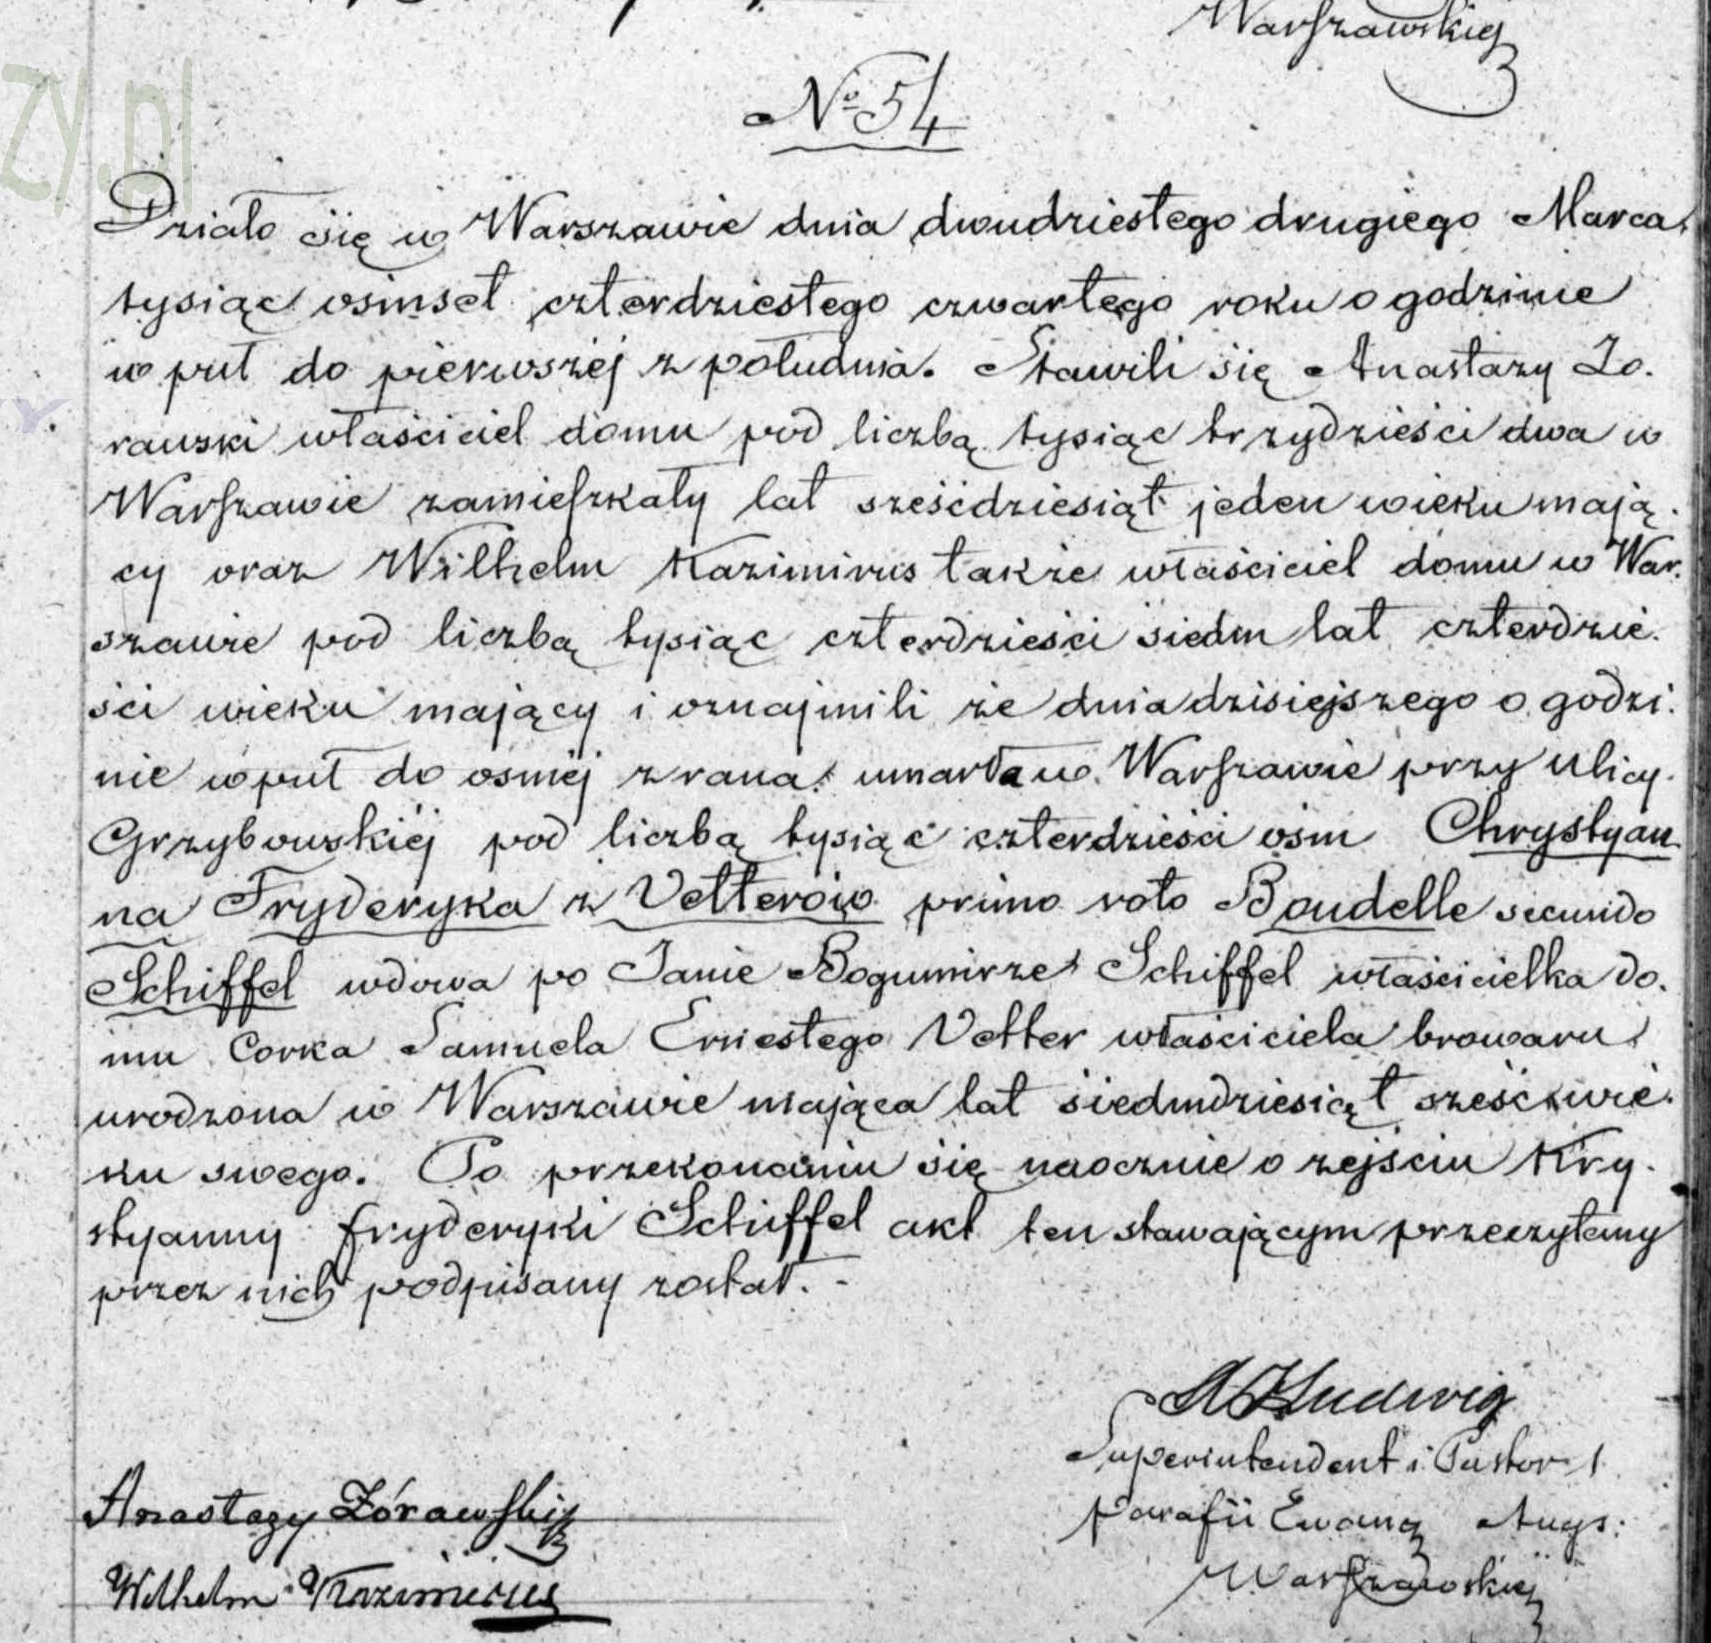 Warszawskiej
№ 54
ZY.pl
Działo się w Warszawie dnia dwudziestego drugiego Marca
tysiąc osmset czterdziestego czwartego roku o godzinie
w puł do pierwszej z południa. Stawili się Anastazy Żo.
Y.
rawski właściciel domu pod liczbą tysiąc trzydzieści dwa w
Warszawie zamieszkały lat sześćdziesiąt jeden wieku mają.
cy oraz Wilhelm Kazimirus także właściciel domu w War.
szawie pod liczbą tysiąc czterdzieści siedm lat czterdzie.
ści wieku mający i oznajmili że dnia dzisiejszego o godzi.
nie w puł do osmej z rana umarła w Warszawie przy ulicy
Grzybowskiéj pod liczbą tysiąc czterdzieści ośm Chrystyan
na Fryderyka z Vetterów primo voto Boudelle secundo
Schiffel wdowa po Janie Bogumirze Schiffel właścicielka do.
mu Corka Samuela Ernestego Vetter właściciela browaru
urodzona w Warszawie mająca lat siedmdziesiąt sześć wie.
ku swego. Po przekonaniu się naocznie o zejściu Kry.
styanny fryderyki Schiffel akt ten stawającym przeczytany
przez nich podpisany został. -
Ludwig
Superintendent i Pastor 1.
Anastazy Żórawski
parafii Ewang Augs:
Wilhelm Kazimirus
Warszawskiej